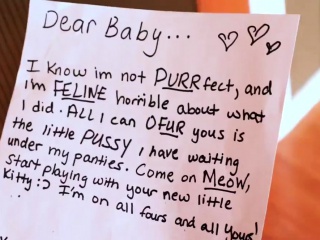 Dear Baby...
I Know im not PURRfect, and
i'm FELINE horrible about what
I did. All I can OFUR yous is
the little PUSSY I have waiting
under my panties. Come on MEOW,
start playing with your new little
Kitty:) I'm on all fours and all yours!